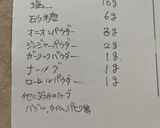 塩 16g
砂糖 6g
オニオンパウダー 3g
ジンジャーパウダー 2g
ガーリックパウダー 1g
ナツメグ 1g
ローレルパウダー 1g
他に好みのハーブ
バジル、タイム、パセリ等